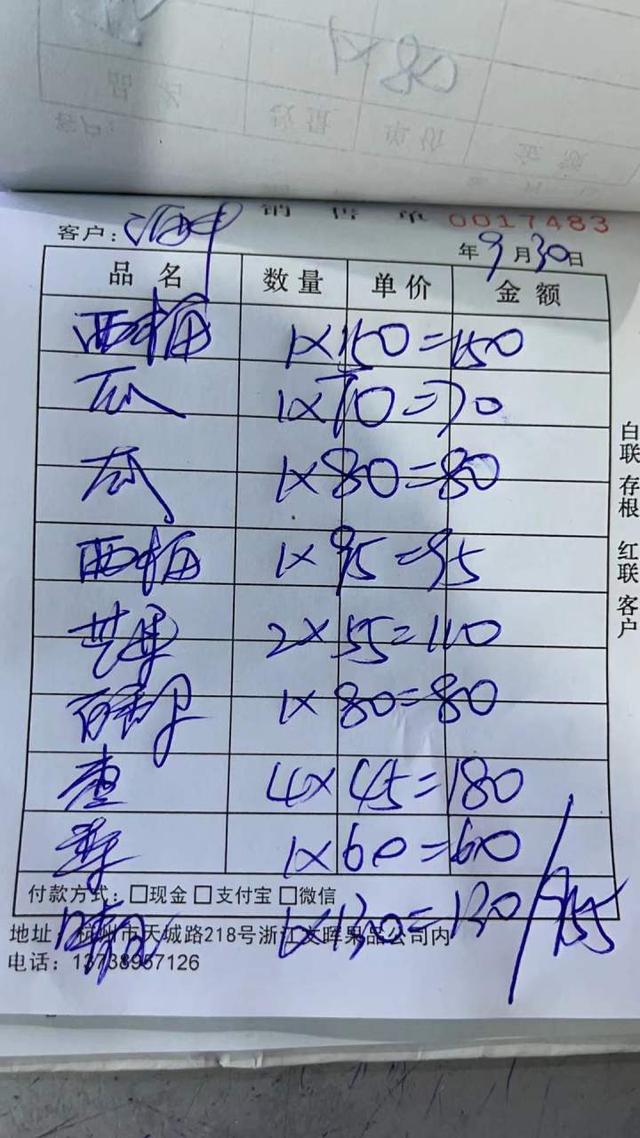 销售单 0017483
客户: 年9月30日
品名 数量 单价 金额
西梅 1×150=150
瓜 1×70=70
瓜 1×80=80
西梅 1×95=95
芒果 2×55=110
1×80=80
4×45=180
1×60=60
付款方式: 现金 支付宝 微信
1×130=130 955
地址 杭州市天城路218号浙江文晖果品公司内
电话: 13738957126
白联 存根 红联 客户